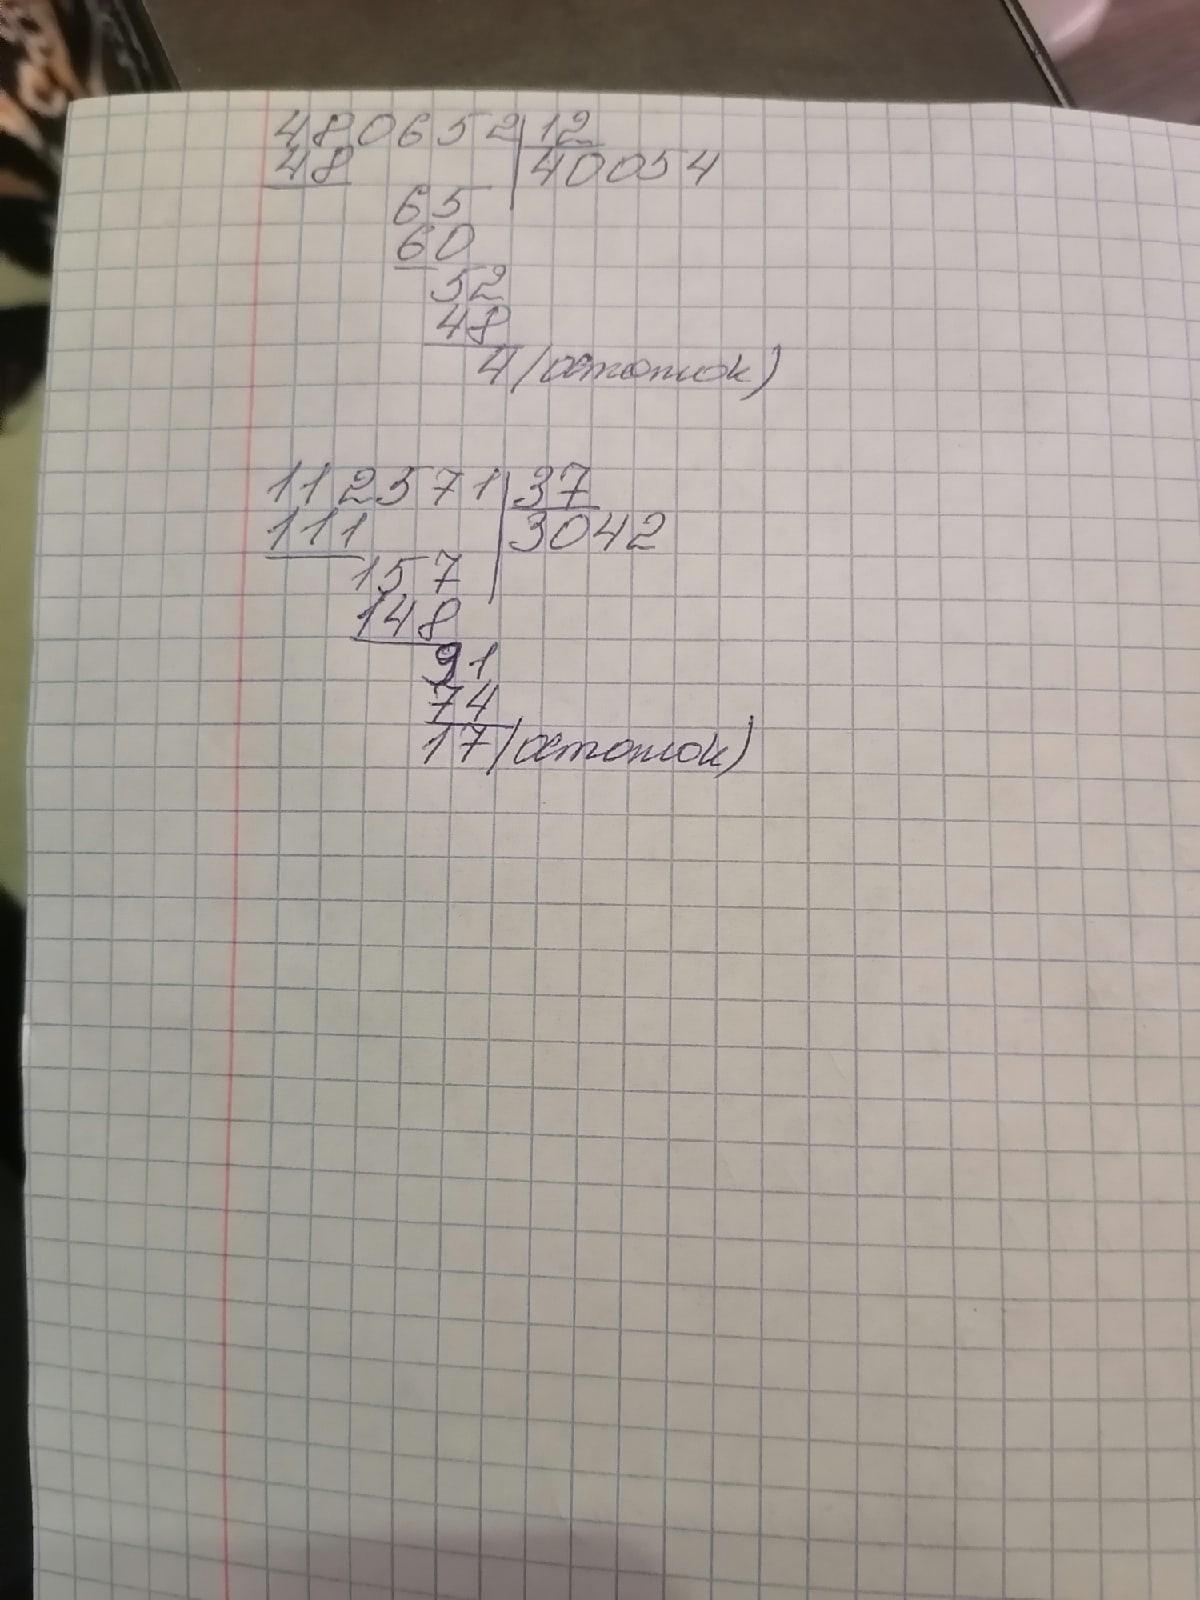 480652 12
48 40054
65
60
52
48
4 (остаток)
112571 37
111 3042
157
148
91
74
17 (остаток)